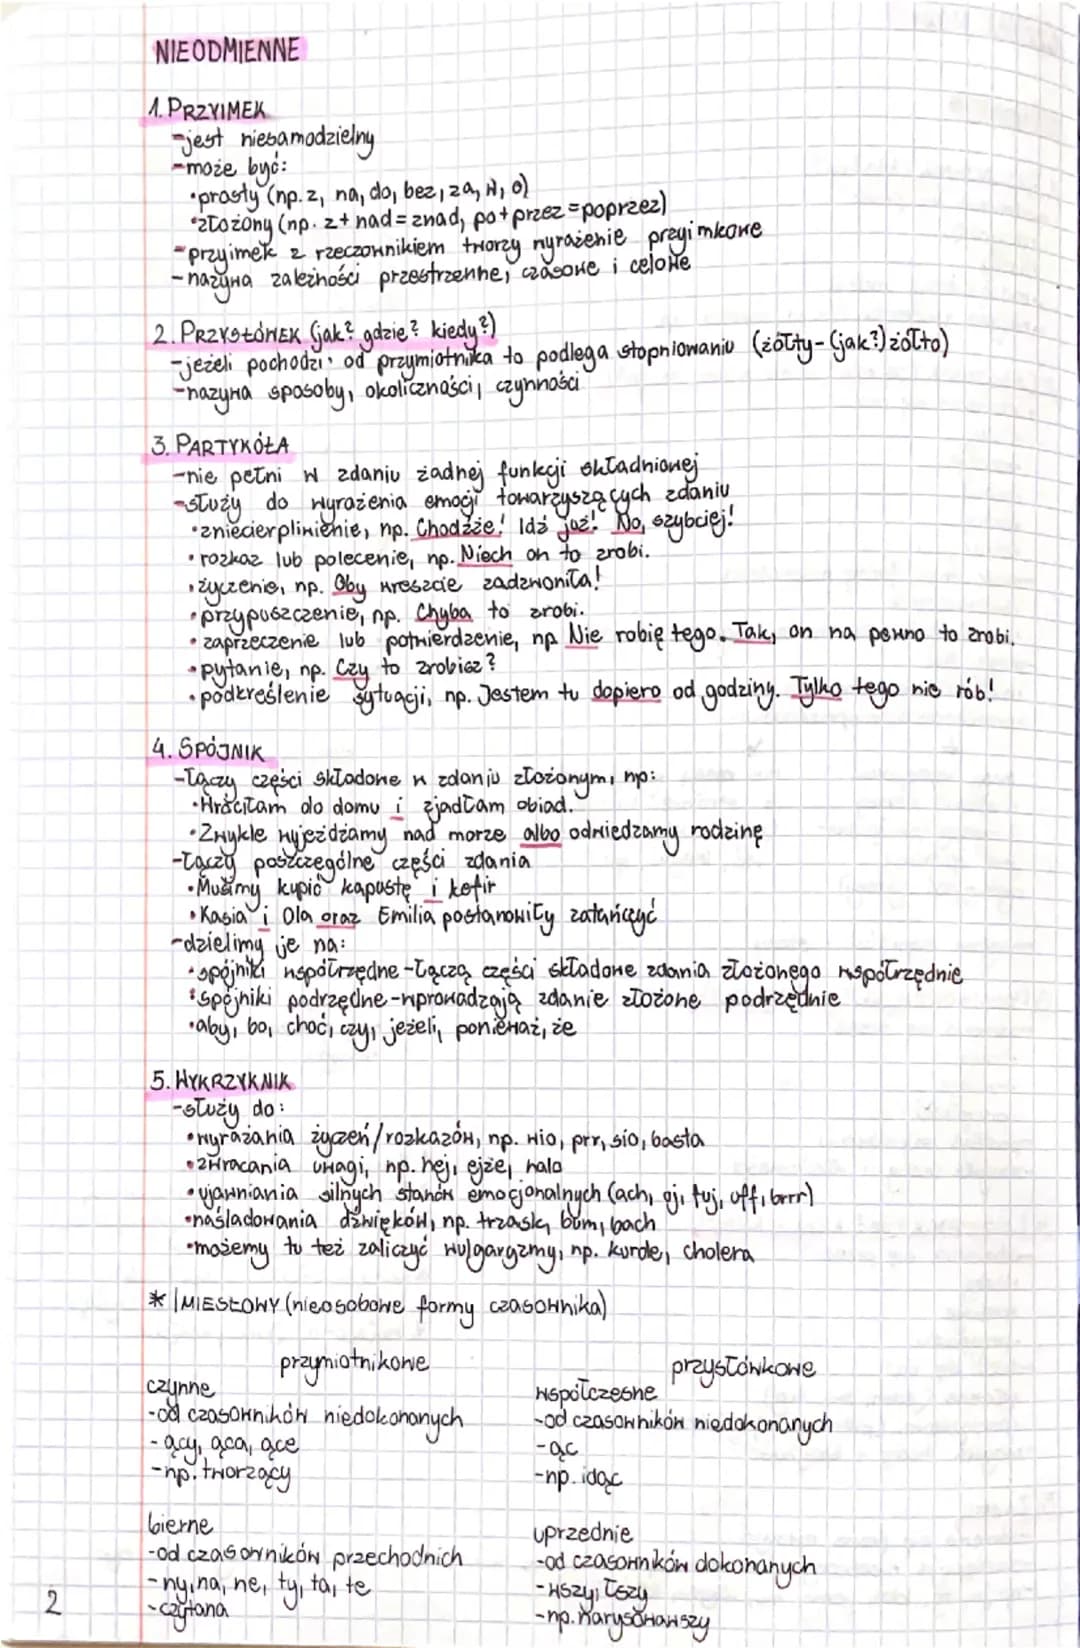 NIEODMIENNE
1. PRZYIMEK
-jest niesamodzielny
-może być:
•prosty (np. z, na, do, bez, za, w, o)
•złożony (np. z+nad=znad, po+przez=poprzez)
-przyimek z rzeczownikiem tworzy wyrażenie przyimkowe
-nazywa zależności przestrzenne, czasowe i celowe
2. PRZYSŁÓWEK (jak? gdzie? kiedy?)
-jeżeli pochodzi od przymiotnika to podlega stopniowaniu (żółty-(jak?) żółto)
-nazywa sposoby, okoliczności, czynności
3. PARTYKÓŁA
-nie pełni w zdaniu żadnej funkcji składniowej
-służy do wyrażenia emocji towarzyszących zdaniu
•zniecierpliwienie, np. Chodźże! Idź już! No, szybciej!
•rozkaz lub polecenie, np. Niech on to zrobi.
•życzenie, np. Oby wreszcie zadzwoniła!
•przypuszczenie, np. Chyba to zrobi.
•zaprzeczenie lub potwierdzenie, np Nie robię tego. Tak, on na pewno to zrobi.
•pytanie, np. Czy to zrobisz?
•podkreślenie sytuacji, np. Jestem tu dopiero od godziny. Tylko tego nie rób!
4. SPÓJNIK
-łączy części składowe w zdaniu złożonym, np:
•Wróciłam do domu i zjadłam obiad.
•Zwykle wyjeżdżamy nad morze albo odwiedzamy rodzinę
-łączy poszczególne części zdania
•Musimy kupić kapustę i kefir
•Kasia i Ola oraz Emilia postanowiły zatańczyć
-dzielimy je na:
•spójniki współrzędne-łączą części składowe zdania złożonego współrzędnie
•spójniki podrzędne-wprowadzają zdanie złożone podrzędnie
•aby, bo, choć, czy, jeżeli, ponieważ, że
5. WYKRZYKNIK
-służy do:
•wyrażania życzeń/rozkazów, np. wio, prr, sio, basta
•zwracania uwagi, np. hej, ejże, halo
•ujawniania silnych stanów emocjonalnych (ach, oj, fuj, uff, brrr)
•naśladowania dźwięków, np. trzask, bum, bach
•możemy tu też zaliczyć wulgaryzmy, np. kurde, cholera
* IMIESŁOWY (nieosobowe formy czasownika)
przymiotnikowe
czynne
-od czasowników niedokonanych
-ący, ąca, ące
-np. tworzący
bierne
-od czasowników przechodnich
-ny, na, ne, ty, ta, te
-czytana
przysłówkowe
współczesne
-od czasowników niedokonanych
-ąc
-np. idąc
uprzednie
-od czasowników dokonanych
-wszy, łszy
-np. narysowawszy
2